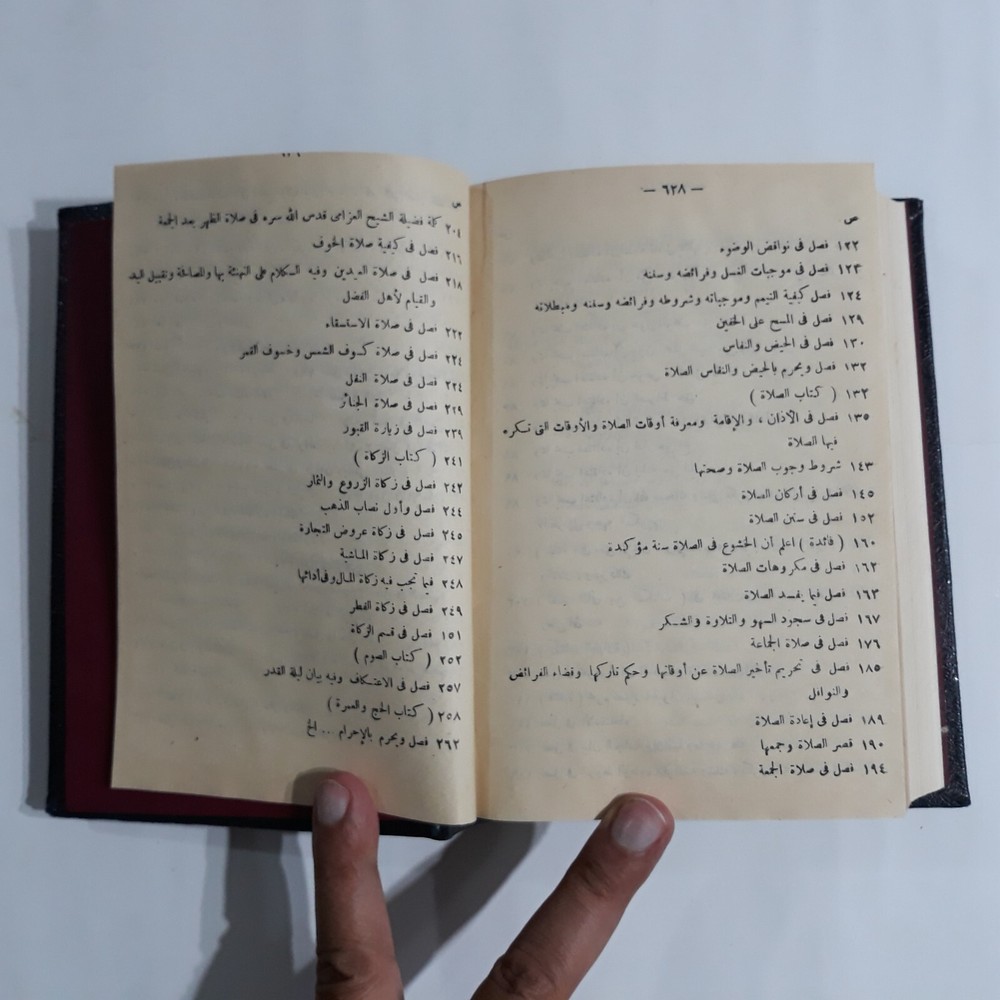 — ٦٢٨ —
ص
١٢٢ فصل فى نواقض الوضوء
١٢٣ فصل فى موجبات الغسل وفرائضه وسننه
١٢٤ فصل كيفية التيمم وموجباته وشروطه وفرائضه وسننه ومبطلاته
١٢٩ فصل فى المسح على الخفين
١٣٠ فصل فى الحيض والنفاس
١٣٢ فصل ويحرم بالحيض والنفاس الصلاة
١٣٣ ( كتاب الصلاة )
١٣٥ فصل فى الآذان ، والإقامة ومعرفة أوقات الصلاة والأوقات التى تكره
فيها الصلاة
١٤٣ شروط وجوب الصلاة وصحتها
١٤٥ فصل فى أركان الصلاة
١٥٢ فصل فى سنن الصلاة
١٦٠ ( فائدة ) اعلم أن الخشوع فى الصلاة سنة مؤكدة
١٦٢ فصل فى مكروهات الصلاة
١٦٣ فصل فيما يفسد الصلاة
١٦٧ فصل فى سجود السهو والتلاوة والشكر
١٧٦ فصل فى صلاة الجماعة
١٨٥ فصل فى تحريم تأخير الصلاة عن أوقاتها وحكم تاركها وقضاء الفرائض
والنوافل
١٨٩ فصل فى إعادة الصلاة
١٩٠ قصر الصلاة وجمعها
١٩٤ فصل فى صلاة الجمعة
ص
٢٠١ كلمة فضيلة الشيخ العزامى قدس الله سره فى صلاة الظهر بعد الجمعة
٢١٦ فصل فى كيفية صلاة الخوف
٢١٨ فصل فى صلاة العيدين وفيه الكلام على التهنئة بها والمصافحة وتقبيل اليد
والقيام لأهل الفضل
٢٢٢ فصل فى صلاة الاستسقاء
٢٢٤ فصل فى صلاة كسوف الشمس وخسوف القمر
٢٢٤ فصل فى صلاة النفل
٢٢٩ فصل فى صلاة الجنائز
٢٣٩ فصل فى زيارة القبور
٢٤١ ( كتاب الزكاة )
٢٤٢ فصل فى زكاة الزروع والثمار
٢٤٤ فصل وأول نصاب الذهب
٢٤٥ فصل فى زكاة عروض التجارة
٢٤٧ فصل فى زكاة الماشية
٢٤٨ فيما تجب فيه زكاة المال وفى أدائها
٢٤٩ فصل فى زكاة الفطر
١٥١ فصل فى قسم الزكاة
٢٥٢ ( كتاب الصوم )
٢٥٧ فصل فى الاعتكاف وفيه بيان ليلة القدر
٢٥٨ ( كتاب الحج والعمرة )
٢٦٢ فصل ويحرم بالإحرام ... الخ